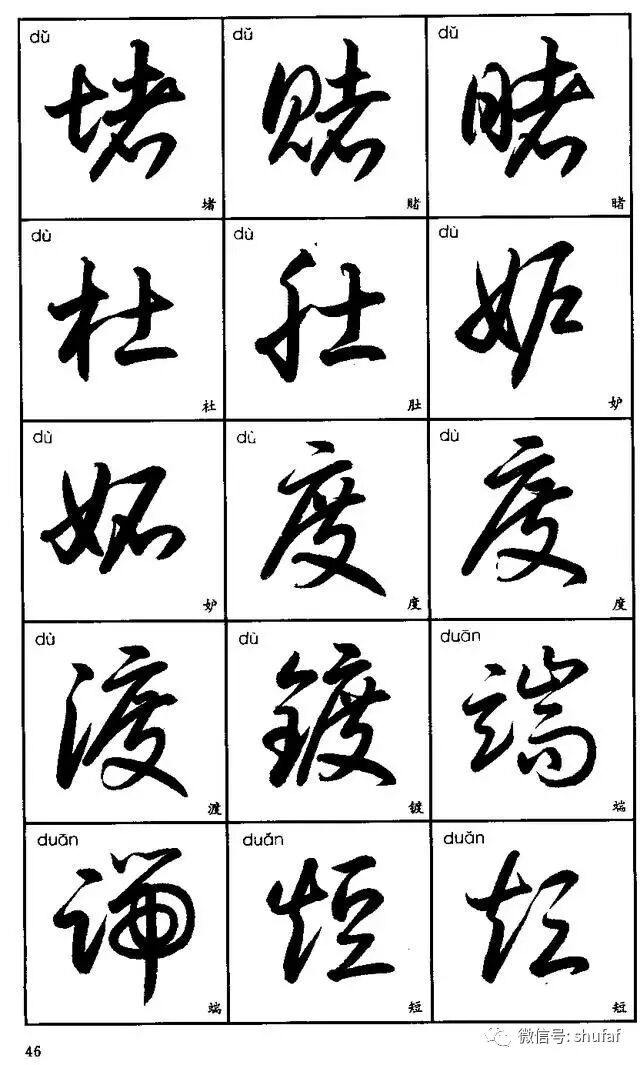 dǔ dǔ dǔ
堵 赌 睹
堵 赌 睹
dù dù dù
杜 肚 妒
杜 肚 妒
dù dù dù
妬 度 度
妒 度 度
dù dù duān
渡 鍍 端
渡 镀 端
duān duǎn duǎn
端 短 短
端 短 短
46
微信号: shufaf